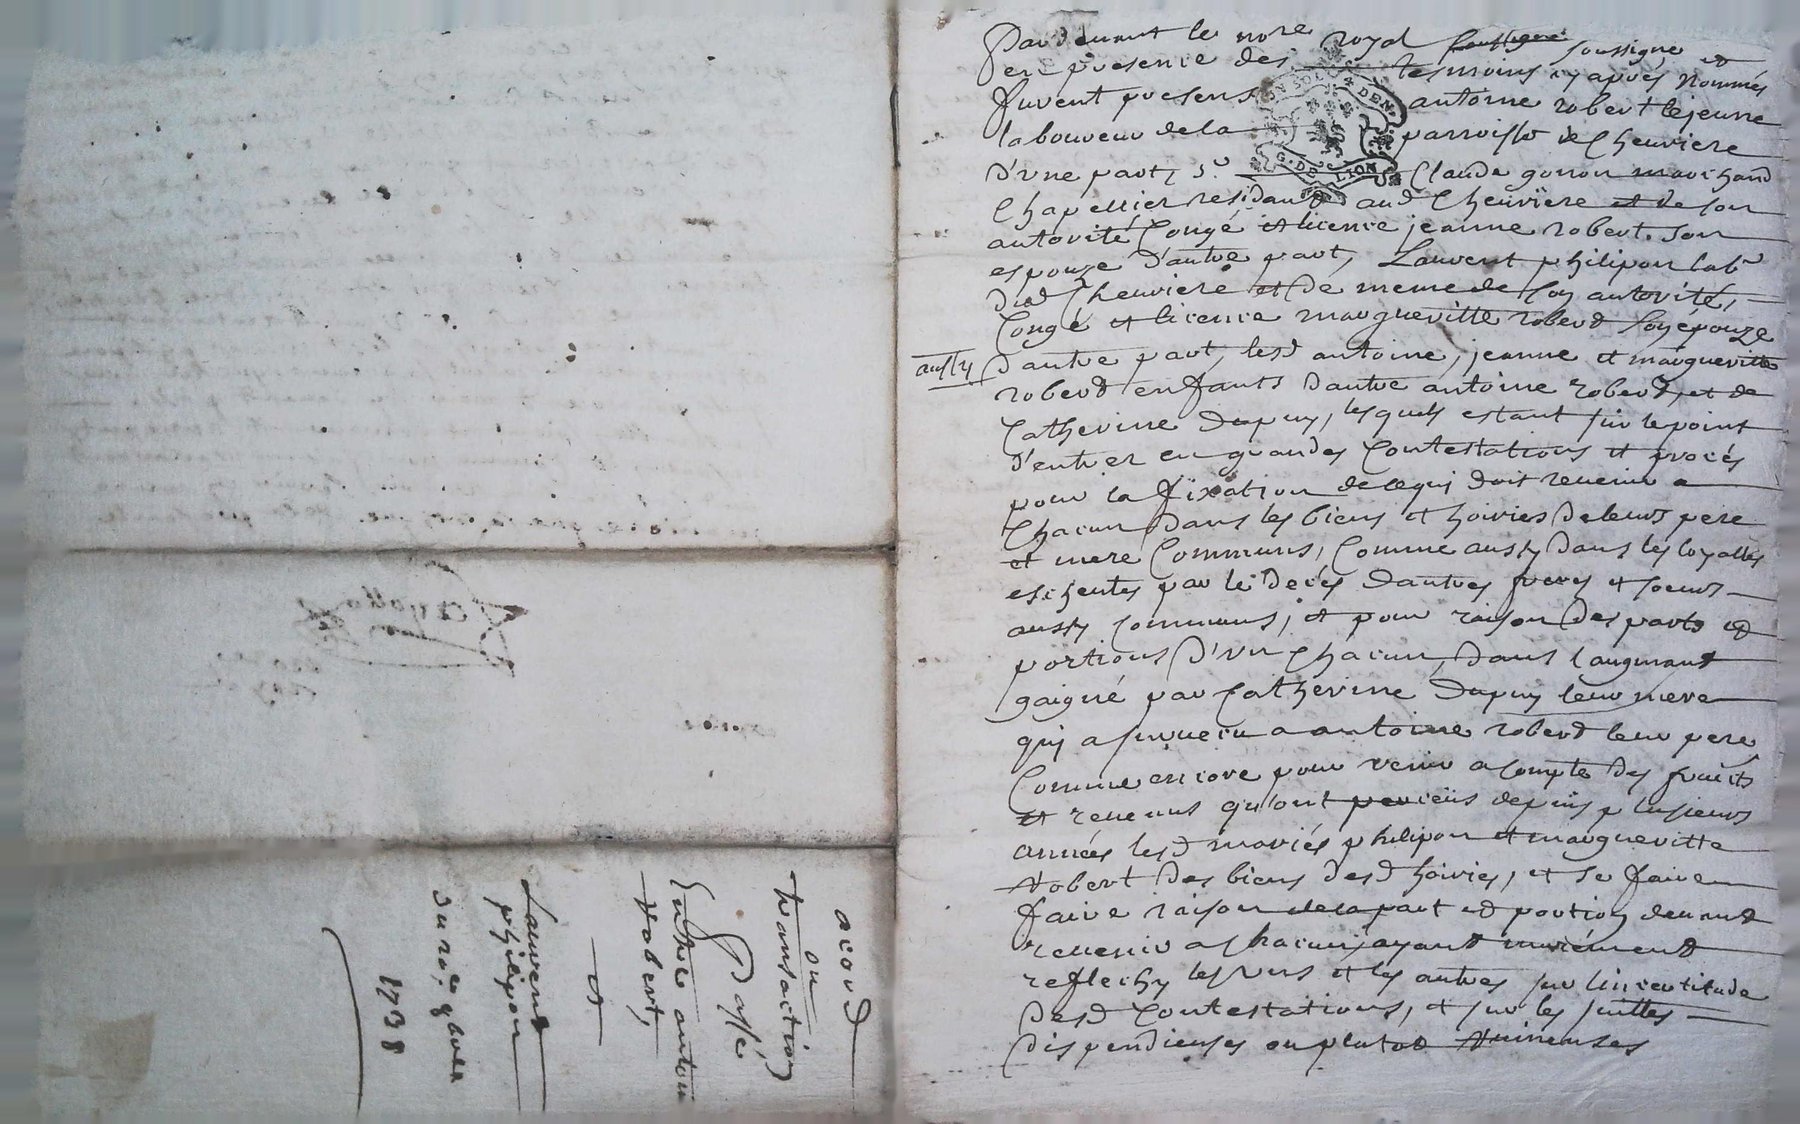 Pardevant le nore royal soussigne
en presence des tesmoins cy apres nommés
furent presens antoine robert lejeune
laboureur de la parroisse de Chevriere
d'vne part, Sr Claude gonon marchand
Chapellier residant aud Chevriere et de son
autorité Congé et licence jeanne robert son
espouze d'autre part, Laurent philipon labr
dud Chevriere et de meme de son autorité,
Congé et licence margueritte roberd son épouze
aussy d'autre part, lesd antoine, jeanne et margueritte
roberd enfants d'autre antoine roberd, et de
Catherine dupuy, lesquels estant sur le point
d'entrer en grandes Contestations et procés
pour la fixation de ce qui doit revenir a
Chacun dans les biens et hoiries de leurs pere
et mere Communs, Comme aussy dans les loyalles
escheutes par le decés d'autres freres et soeurs
aussy communs, et pour raison des parts et
portions d'vn Chacun, dans l'augmant
gaigné par Catherine dupuy leur mere
qui a survecu a antoine roberd leur pere
Comme encore pour venir a compte des fruits
et revenus qu'ont perceüs depuis plusieurs
années lesd mariés philipon et margueritte
robert des biens desd hoiries, et se faire
faire raison de la part et portion devant
revenir a chacun, ayant murément
reflechy les vns et les autres sur l'incertitude
desd Contestations, et sur les suittes
dispendieuses ou plutot ruineuses
acord
ou
transaction
Passé
Entre antoine
robert,
et
Laurent
philipon
du 20e 9bre
1738
G. DE LION
4 DEN.